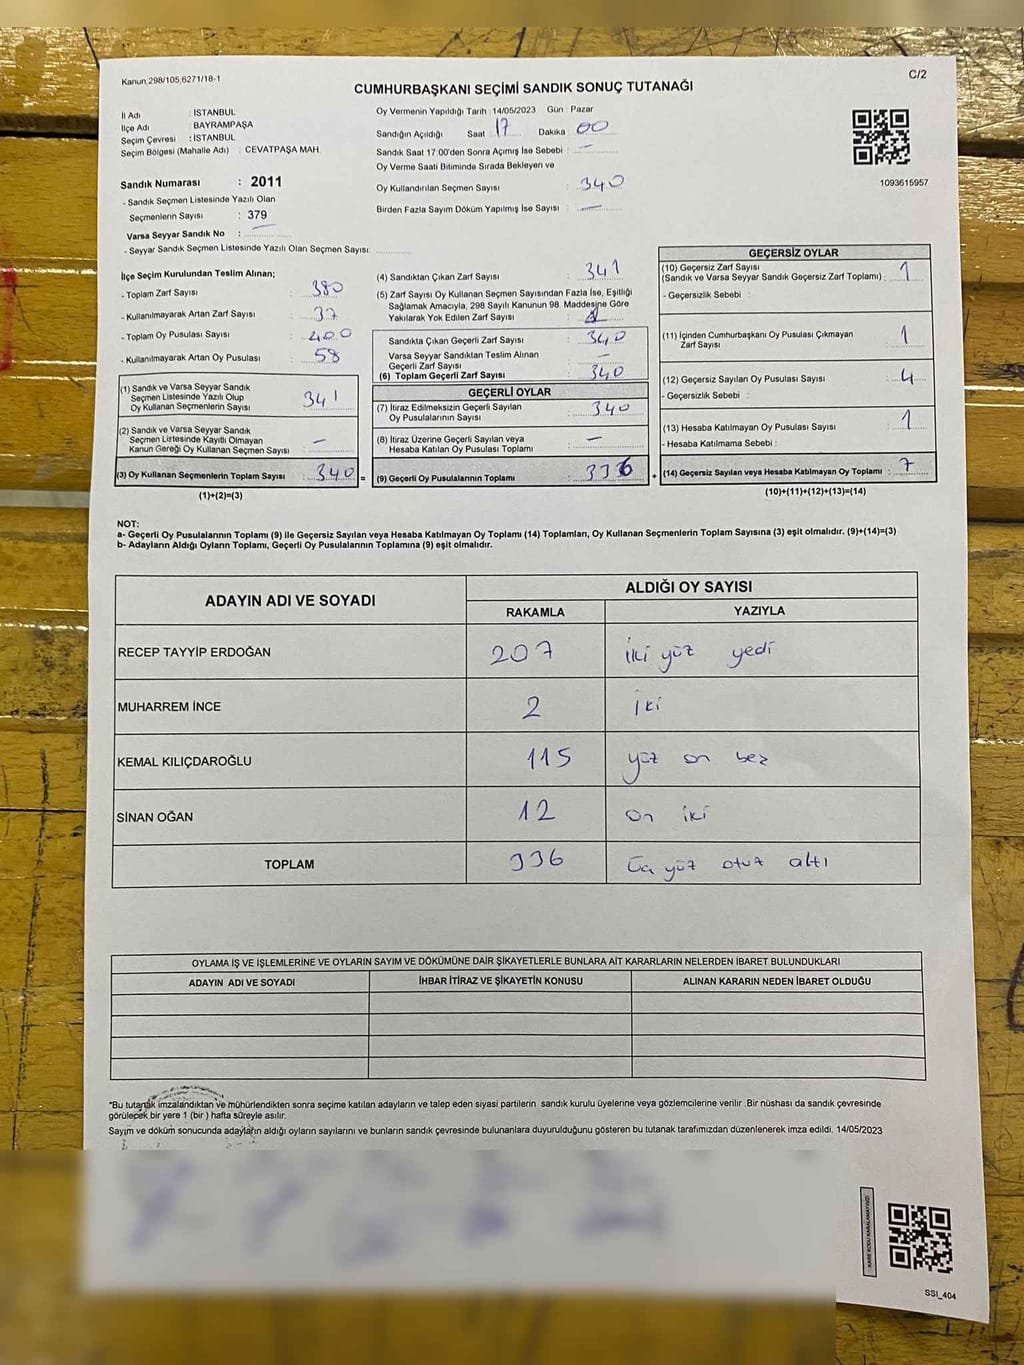 Kanun:298/105,6271/18-1
C/2
CUMHURBAŞKANI SEÇİMİ SANDIK SONUÇ TUTANAĞI
İl Adı : İSTANBUL
İlçe Adı : BAYRAMPAŞA
Seçim Çevresi : İSTANBUL
Seçim Bölgesi (Mahalle Adı) : CEVATPAŞA MAH.
Sandık Numarası : 2011
- Sandık Seçmen Listesinde Yazılı Olan
Seçmenlerin Sayısı : 379
Varsa Seyyar Sandık No : —
- Seyyar Sandık Seçmen Listesinde Yazılı Olan Seçmen Sayısı:
Oy Vermenin Yapıldığı Tarih : 14/05/2023 Gün : Pazar
Sandığın Açıldığı Saat 17 Dakika 00
Sandık Saat 17:00'den Sonra Açımış İse Sebebi : —
Oy Verme Saati Bitiminde Sırada Bekleyen ve
Oy Kullandırılan Seçmen Sayısı : 340
Birden Fazla Sayım Döküm Yapılmış İse Sayısı : —
1093615957
İlçe Seçim Kurulundan Teslim Alınan;
- Toplam Zarf Sayısı : 380
- Kullanılmayarak Artan Zarf Sayısı : 37
- Toplam Oy Pusulası Sayısı : 400
- Kullanılmayarak Artan Oy Pusulası : 58
(1) Sandık ve Varsa Seyyar Sandık
Seçmen Listesinde Yazılı Olup
Oy Kullanan Seçmenlerin Sayısı : 341
(2) Sandık ve Varsa Seyyar Sandık
Seçmen Listesinde Kayıtlı Olmayan
Kanun Gereği Oy Kullanan Seçmen Sayısı : —
(3) Oy Kullanan Seçmenlerin Toplam Sayısı : 340 =
(1)+(2)=(3)
(4) Sandıktan Çıkan Zarf Sayısı : 341
(5) Zarf Sayısı Oy Kullanan Seçmen Sayısından Fazla İse, Eşitliği
Sağlamak Amacıyla, 298 Sayılı Kanunun 98. Maddesine Göre
Yakılarak Yok Edilen Zarf Sayısı :
Sandıkta Çıkan Geçerli Zarf Sayısı : 340
Varsa Seyyar Sandıktan Teslim Alınan
Geçerli Zarf Sayısı : —
(6) Toplam Geçerli Zarf Sayısı : 340
GEÇERLİ OYLAR
(7) İtiraz Edilmeksizin Geçerli Sayılan
Oy Pusulalarının Sayısı : 340
(8) İtiraz Üzerine Geçerli Sayılan veya
Hesaba Katılan Oy Pusulaları Toplamı : —
(9) Geçerli Oy Pusulalarının Toplamı : 336 +
GEÇERSİZ OYLAR
(10) Geçersiz Zarf Sayısı
(Sandık ve Varsa Seyyar Sandık Geçersiz Zarf Toplamı) : 1
- Geçersizlik Sebebi :
(11) İçinden Cumhurbaşkanı Oy Pusulası Çıkmayan
Zarf Sayısı : 1
(12) Geçersiz Sayılan Oy Pusulası Sayısı : 4
- Geçersizlik Sebebi :
(13) Hesaba Katılmayan Oy Pusulası Sayısı : 1
- Hesaba Katılmama Sebebi :
(14) Geçersiz Sayılan veya Hesaba Katılmayan Oy Toplamı : 7
(10)+(11)+(12)+(13)=(14)
NOT:
a- Geçerli Oy Pusulalarının Toplamı (9) ile Geçersiz Sayılan veya Hesaba Katılmayan Oy Toplamı (14) Toplamları, Oy Kullanan Seçmenlerin Toplam Sayısına (3) eşit olmalıdır. (9)+(14)=(3)
b- Adayların Aldığı Oyların Toplamı, Geçerli Oy Pusulalarının Toplamına (9) eşit olmalıdır.
ADAYIN ADI VE SOYADI
ALDIĞI OY SAYISI
RAKAMLA YAZIYLA
RECEP TAYYİP ERDOĞAN 207 iki yüz yedi
MUHARREM İNCE 2 iki
KEMAL KILIÇDAROĞLU 115 yüz on beş
SİNAN OĞAN 12 on iki
TOPLAM 336 Üç yüz otuz altı
OYLAMA İŞ VE İŞLEMLERİNE VE OYLARIN SAYIM VE DÖKÜMÜNE DAİR ŞİKAYETLERLE BUNLARA AİT KARARLARIN NELERDEN İBARET BULUNDUKLARI
ADAYIN ADI VE SOYADI İHBAR İTİRAZ VE ŞİKAYETİN KONUSU ALINAN KARARIN NEDEN İBARET OLDUĞU
*Bu tutanak imzalandıktan ve mühürlendikten sonra seçime katılan adayların ve talep eden siyasi partilerin sandık kurulu üyelerine veya gözlemcilerine verilir .Bir nüshası da sandık çevresinde
görülepek bir yere 1 (bir ) hafta süreyle asılır.
Sayım ve döküm sonucunda adayların aldığı oyların sayılarını ve bunların sandık çevresinde bulunanlara duyurulduğunu gösteren bu tutanak tarafımızdan düzenlenerek imza edildi. 14/05/2023
KARE KODU KARALAMAYINIZ!
SSI_404